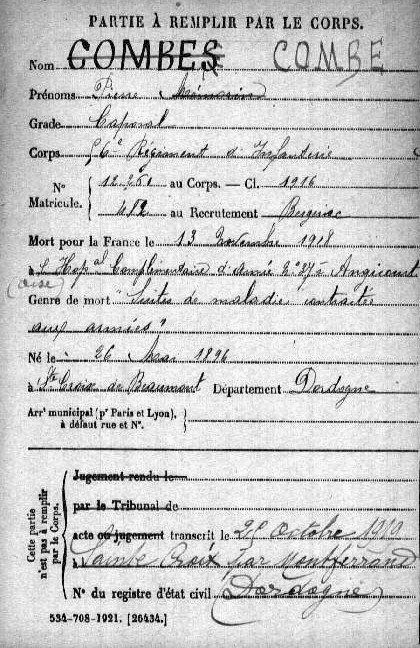 PARTIE À REMPLIR PAR LE CORPS.
Nom GOMBES COMBE
Prénoms Pierre
Grade Caporal
Corps 6e Régiment d'Infanterie
No 12.250 au Corps. — Cl. 1916
Matricule. 482 au Recrutement Bergerac
Mort pour la France le 13 novembre 1918
à l'Hopal Complémentaire d'Armée No 37 à Angicourt
(Oise)
Genre de mort "Suites de maladie contractée
aux armées"
Né le 26 Mai 1896
à Ste Croix de Beaumont Département Dordogne
Arrt municipal (pr Paris et Lyon),
à défaut rue et No.
Cette partie
n'est pas à remplir
par le Corps.
Jugement rendu le
par le Tribunal de
acte ou jugement transcrit le octobre 1919
à Sainte Croix par Montferrand
No du registre d'état civil (Dordogne)
534-708-1921. [26434.]